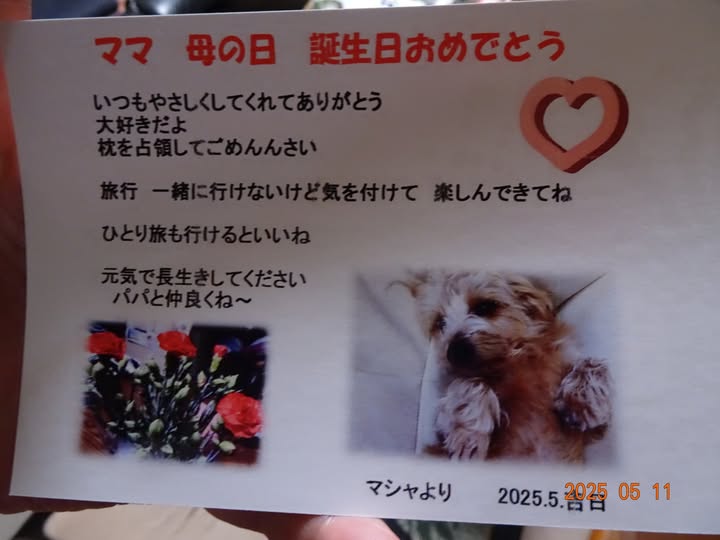 ママ 母の日 誕生日おめでとう
いつもやさしくしてくれてありがとう
大好きだよ
枕を占領してごめんんさい
旅行 一緒に行けないけど気を付けて 楽しんできてね
ひとり旅も行けるといいね
元気で長生きしてください
パパと仲良くね～
マシャより 2025.5.吉日
2025 05 11